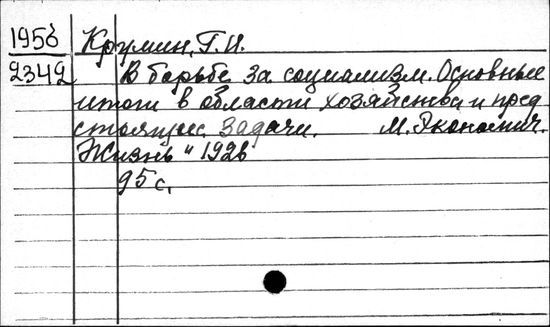 1956 Крумин, Г. И.
2342 В борьбе за социализм. Основные
итоги в области хозяйства и пред
стоящие задачи. М. Экономич.
Жизнь" 1926
95 с.